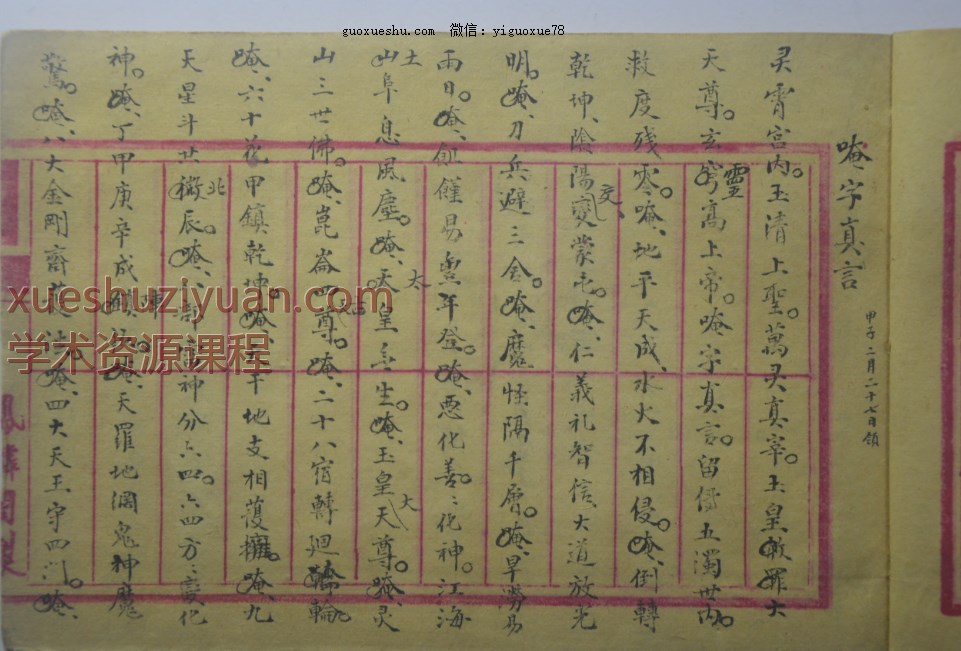 guoxueshu.com 微信：yiguoxue78
唵字真言
甲子二月二十七日領
灵霄宮内。玉清上聖。萬灵真宰。玉皇赦罪大
天尊。玄穹高上帝。唵字真言。留傳五濁世内。
靈
救度残零。唵、地平天成、水火不相侵。唵、倒轉
乾坤、陰陽變蒙屯。唵、仁義礼智信、大道放光
交
明。唵、刀兵避三舍。唵、魔怪隔千層。唵、旱澇易
雨日。唵、飢饉易豊年登。唵、悪化善。善化神。江海
山阜息風塵。唵、天皇無生。唵、玉皇天尊。唵、灵
土
太
大
山三世佛。唵、崑崙四尊。唵、二十八宿轉廻輪。
唵、六十花甲鎮乾坤。唵、天干地支相護擁。唵、九
天星斗共徽辰。唵、八部 神分六四。六四方方変化
北
神。唵、丁甲庚辛成 唵、天羅地網鬼神魔
驚。唵、八大金剛齋 唵、四大天王守四门。唵、
xueshuziyuan.com
学术资源课程